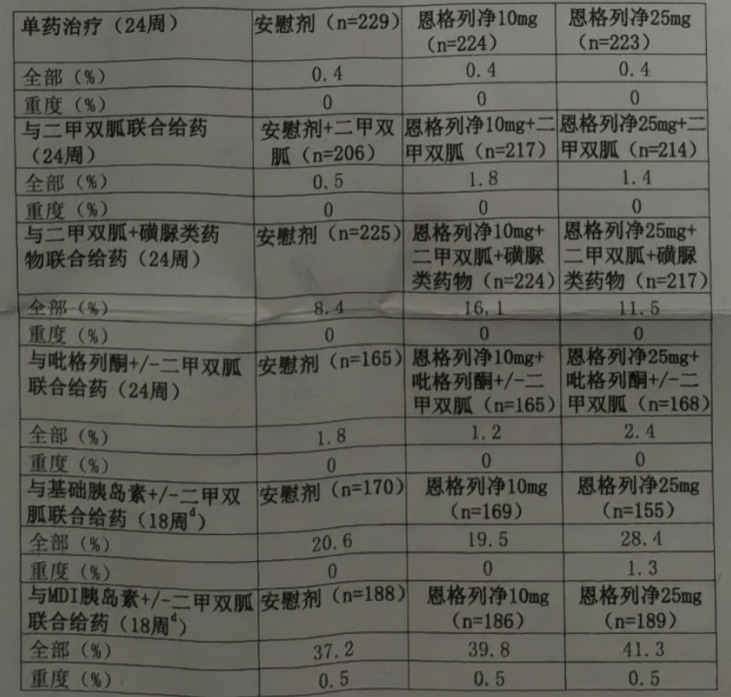 单药治疗（24周） 安慰剂（n=229） 恩格列净10mg 恩格列净25mg
（n=224） （n=223）
全部（%） 0.4 0.4 0.4
重度（%） 0 0 0
与二甲双胍联合给药 安慰剂+二甲双 恩格列净10mg+二 恩格列净25mg+二
（24周） 胍（n=206） 甲双胍（n=217） 甲双胍（n=214）
全部（%） 0.5 1.8 1.4
重度（%） 0 0 0
与二甲双胍+磺脲类药 安慰剂（n=225） 恩格列净10mg+ 恩格列净25mg+
物联合给药（24周） 二甲双胍+磺脲 二甲双胍+磺脲
类药物（n=224） 类药物（n=217）
全部（%） 8.4 16.1 11.5
重度（%） 0 0 0
与吡格列酮+/-二甲双胍 安慰剂（n=165） 恩格列净10mg+ 恩格列净25mg+
联合给药（24周） 吡格列酮+/-二 吡格列酮+/-二
甲双胍（n=165） 甲双胍（n=168）
全部（%） 1.8 1.2 2.4
重度（%） 0 0 0
与基础胰岛素+/-二甲双 安慰剂（n=170） 恩格列净10mg 恩格列净25mg
胍联合给药（18周d） （n=169） （n=155）
全部（%） 20.6 19.5 28.4
重度（%） 0 0 1.3
与MDI胰岛素+/-二甲双胍 安慰剂（n=188） 恩格列净10mg 恩格列净25mg
联合给药（18周d） （n=186） （n=189）
全部（%） 37.2 39.8 41.3
重度（%） 0.5 0.5 0.5